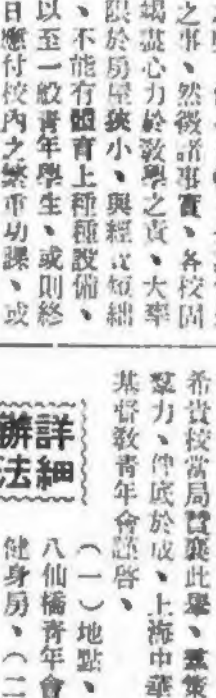 之事、然徵諸事實、各校固
竭盡心力於教學之責、大率
限於房屋狹小、與經濟短絀
、不能有體育上種種設備、
以至一般青年學生、或則終
日應付校內之繁重功課、或
希貴校當局贊襄此舉、羣策
羣力、俾底於成、上海中華
基督教青年會謹啓、
詳細
辦法
（一）地點、
八仙橋青年會
健身房、（二